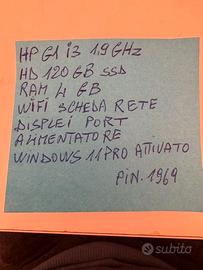 HP G1 i3 1,9 GHz
HD 120 GB SSD
RAM 4 GB
WIFI SCHEDA RETE
DISPLEI PORT
ALIMENTATORE
WINDOWS 11 PRO ATTIVATO
PIN. 1969
subito